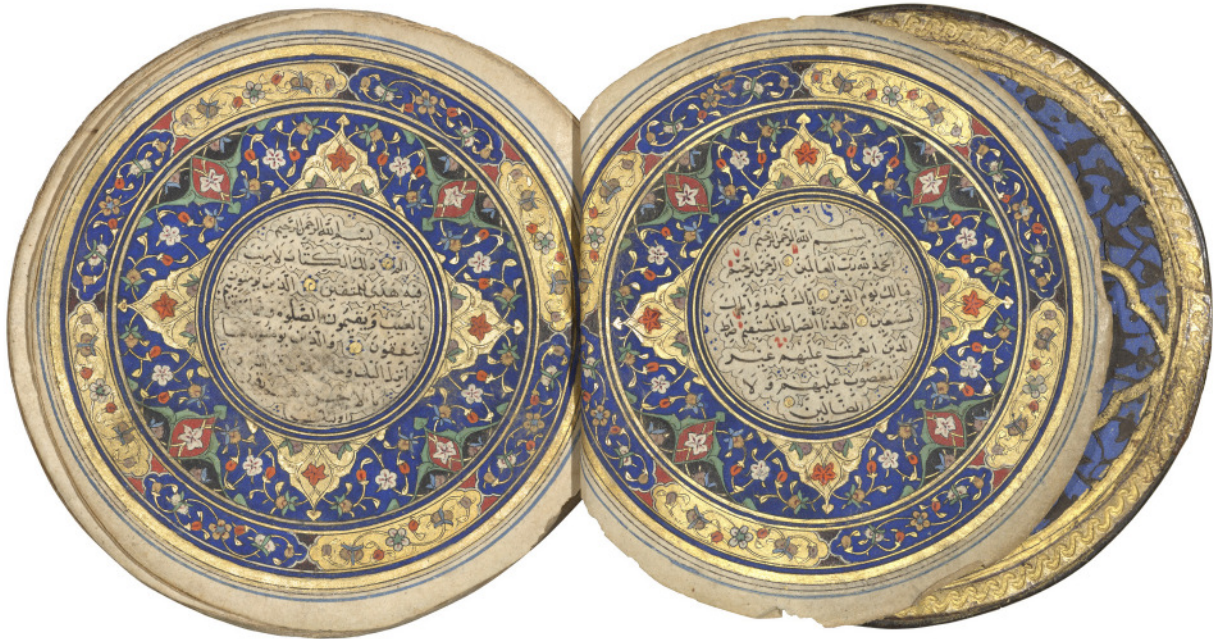 بسم الله الرحمن الرحيم
الحمد لله رب العالمين الرحمن الرحيم
مالك يوم الدين اياك نعبد و اياك
نستعين اهدنا الصراط المستقيم صراط
الذين انعمت عليهم غير
المغضوب عليهم و لا
الضالين
بسم الله الرحمن الرحيم
الم ذلك الكتاب لا ريب
فيه هدى للمتقين الذين يومنون
بالغيب و يقيمون الصلوة
ينفقون والذين يومنون بما
انزل اليك و ما